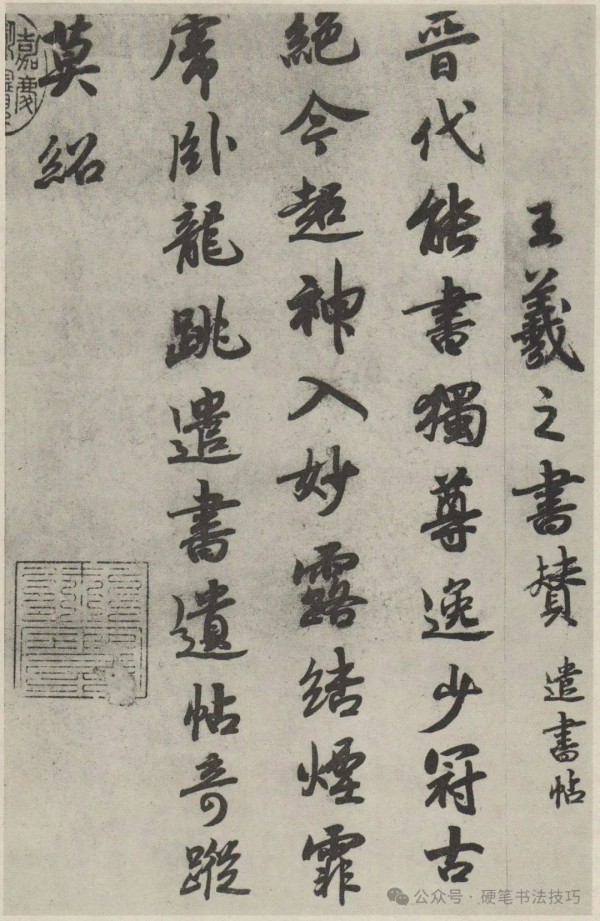 王羲之書賛 遣書帖
晋代能書獨尊逸少冠古
絶今超神入妙露結煙霏
席卧龍跳遣書遺帖奇蹤
莫紹
嘉慶
公众号·硬笔书法技巧